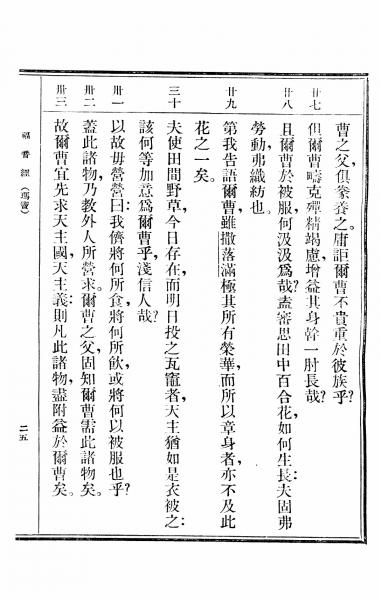 曹之父,俱豢養之。庸詎爾曹不貴重於彼族乎?
廿七 但爾曹疇克殫精竭慮增益其身幹一肘長哉?
廿八 且爾曹於被服何汲汲爲哉?盍審思田中百合花,如何生長:夫固弗
勞動弗織紡也。
廿九 第我告語爾曹,雖撒落滿極其所有榮華,而所以章身者,亦不及此
花之一矣。
三十 夫使田間野草,今日存在,而明日投之瓦竈者,天主猶如是衣被之:
該何等加意爲爾曹乎,淺信人哉?
卅一 以故毋營營曰:我儕將何所食,將何所飲,或將何以被服也乎?
卅二 蓋此諸物,乃敎外人所營求。爾曹之父,固知爾曹需此諸物矣。
卅三 故爾曹宜先求天主國,天主義:則凡此諸物,盡附益於爾曹矣。
福音經(瑪竇) 二五